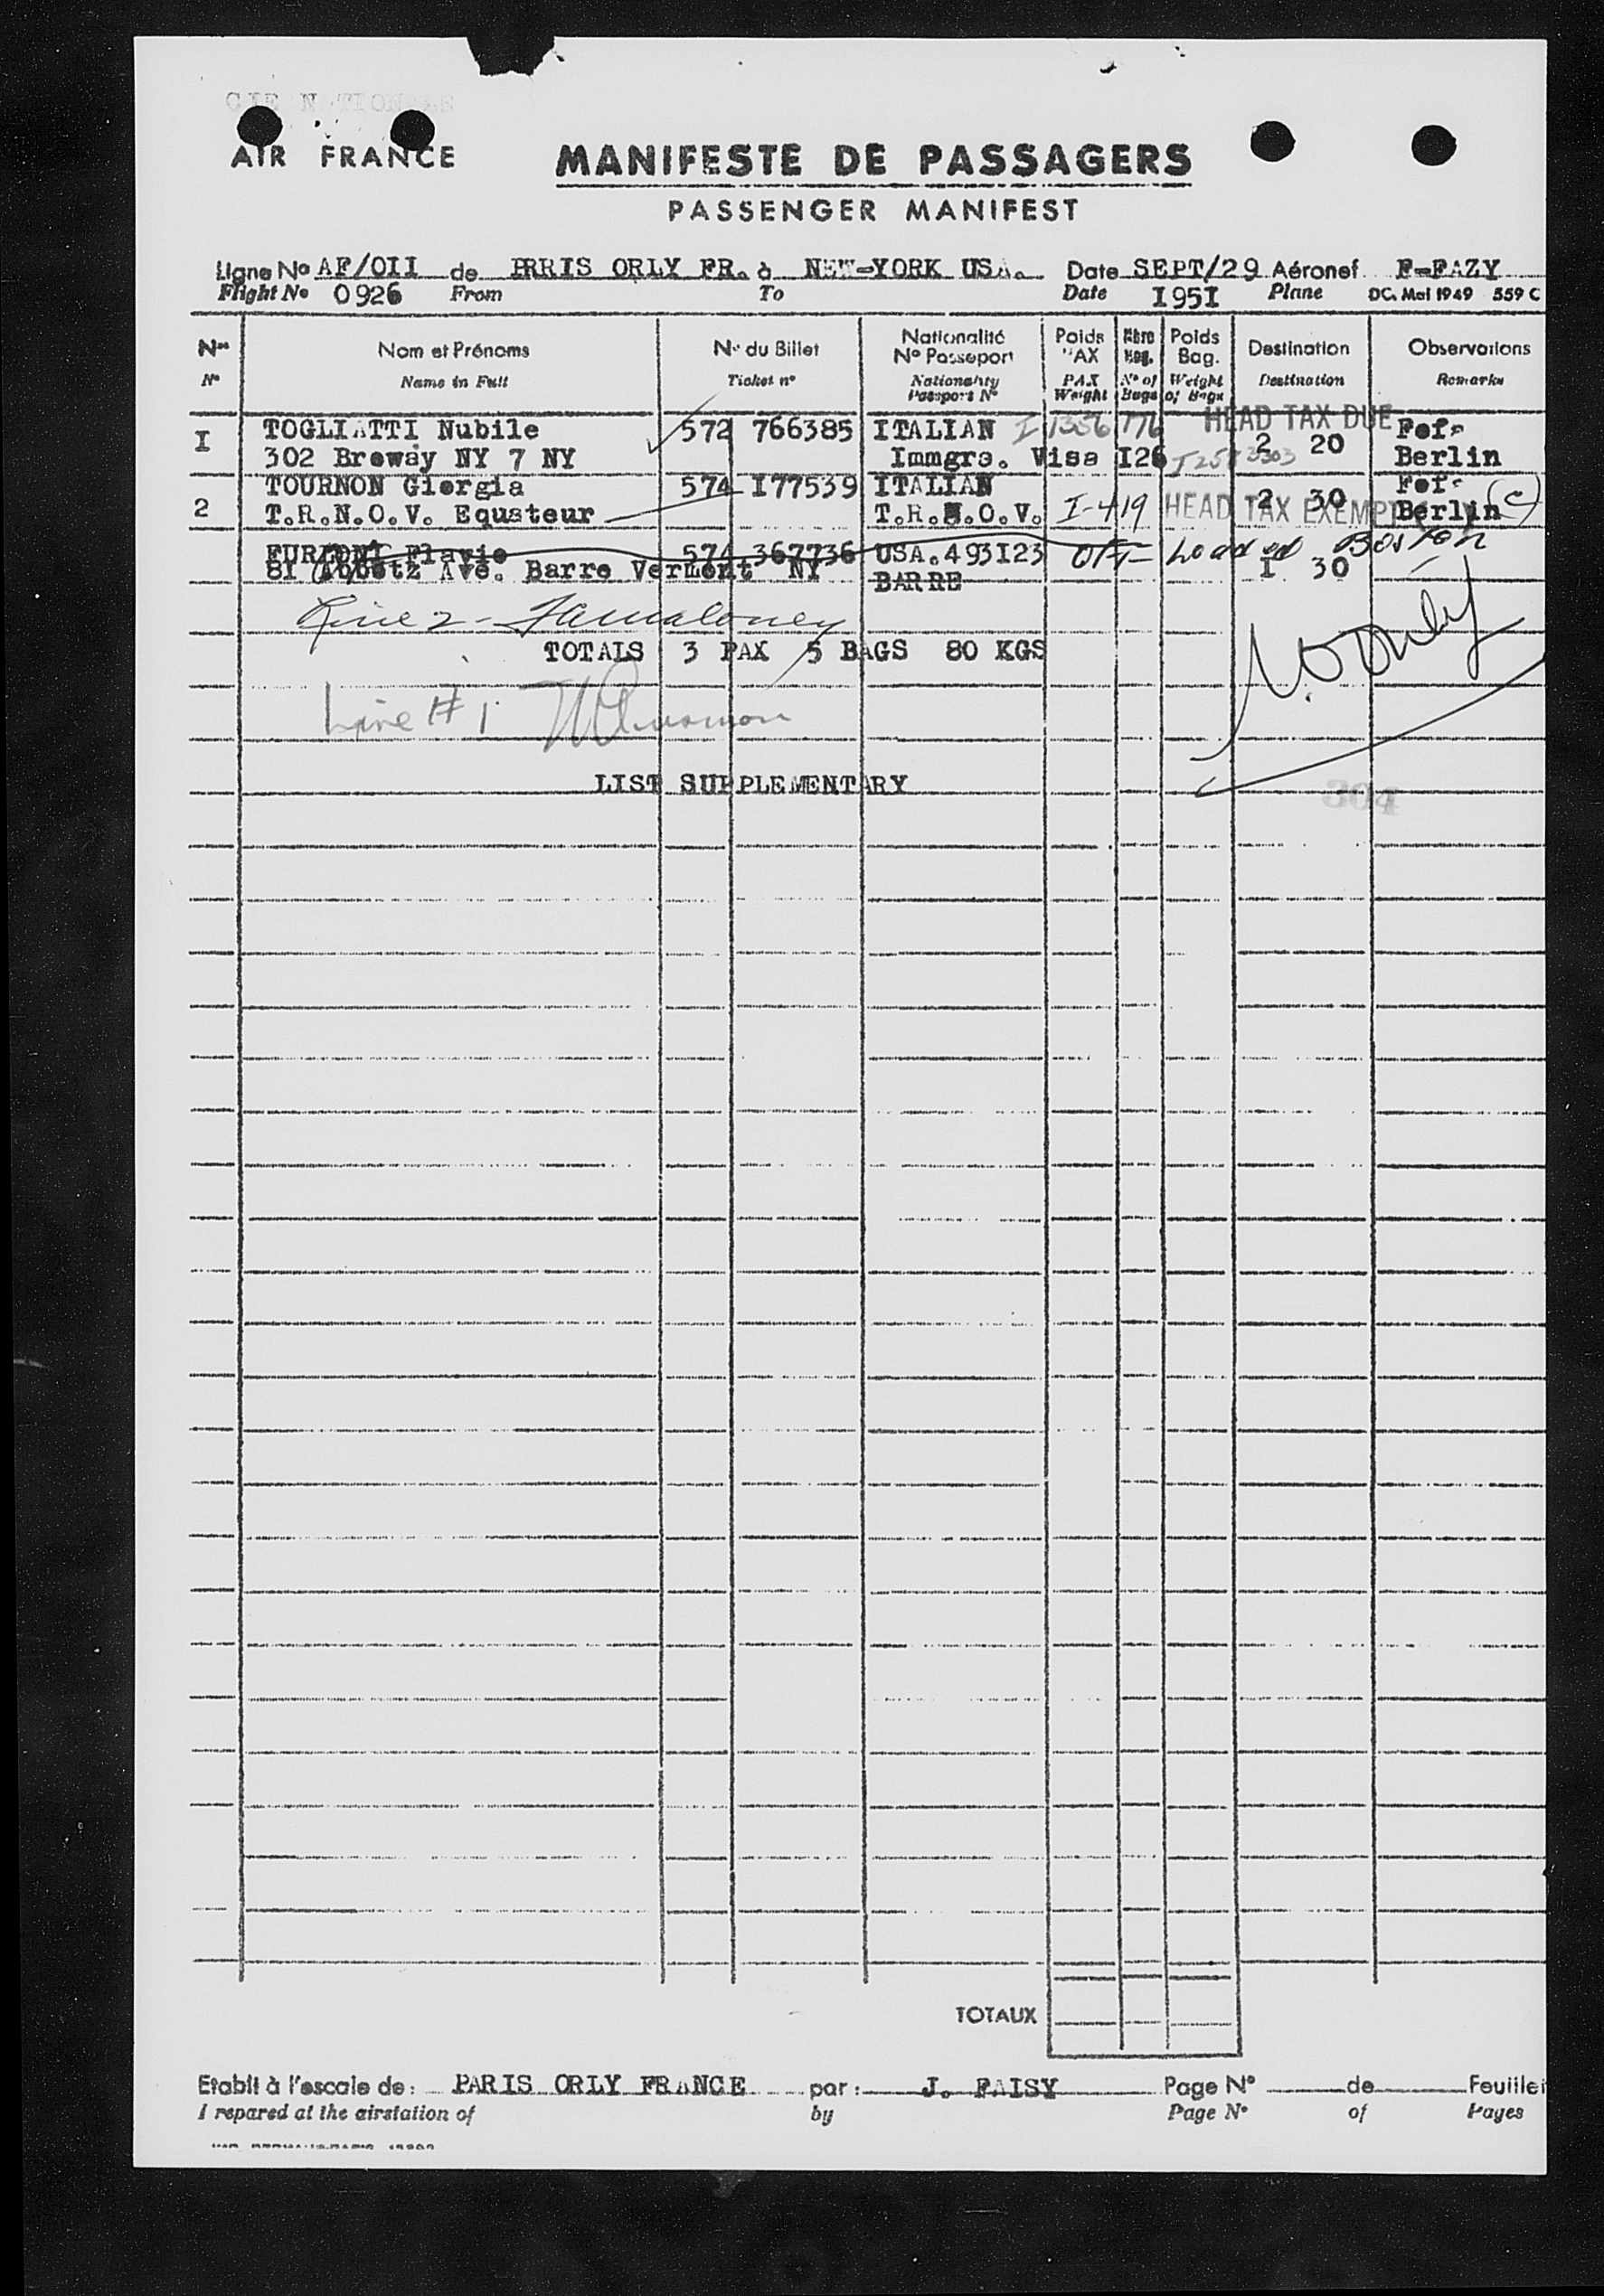 AIR FRANCE
MANIFESTE DE PASSAGERS
PASSENGER MANIFEST
Ligne No AF/OII de PRRIS ORLY FR. à NEW-YORK USA. Date SEPT/29 Aéronef F-FAZY
Flight No 0926 From To Date I95I Plane DC. Mai 1949 559 C
Nos Nom et Prénoms No du Billet Nationalité No Passeport Poids PAX Nbre Bag. Poids Bag. Destination Observations
No Name in Full Ticket no Nationality Passport No PAX Weight No of Bags Weight of Bags Destination Remarks
HEAD TAX DUE
I TOGLIATTI Nubile 572 766385 ITALIAN I 1336 776 2 20 Fof.
302 Broway NY 7 NY Immgra. Visa I26 Berlin
TOURNON Giorgia 574 I77539 ITALIAN Fof.
2 T.R.N.O.V. Equateur T.R.N.O.V. I-419 HEAD TAX EXEMPT 2 30 Berlin (C)
FURLONI Flavio 574 367736 USA.493I23 Off- Loaded Boston
8I Abbotz Ave. Barre Vermont NY BARRE I 30
Line 2-
TOTALS 3 PAX 5 BAGS 80 KGS
Line # 1
LIST SUPPLEMENTARY
304
TOTAUX
Etabli à l'escale de: PARIS ORLY FRANCE par: J. FAISY Page No de Feuille
I repared at the airstation of by Page No of Pages